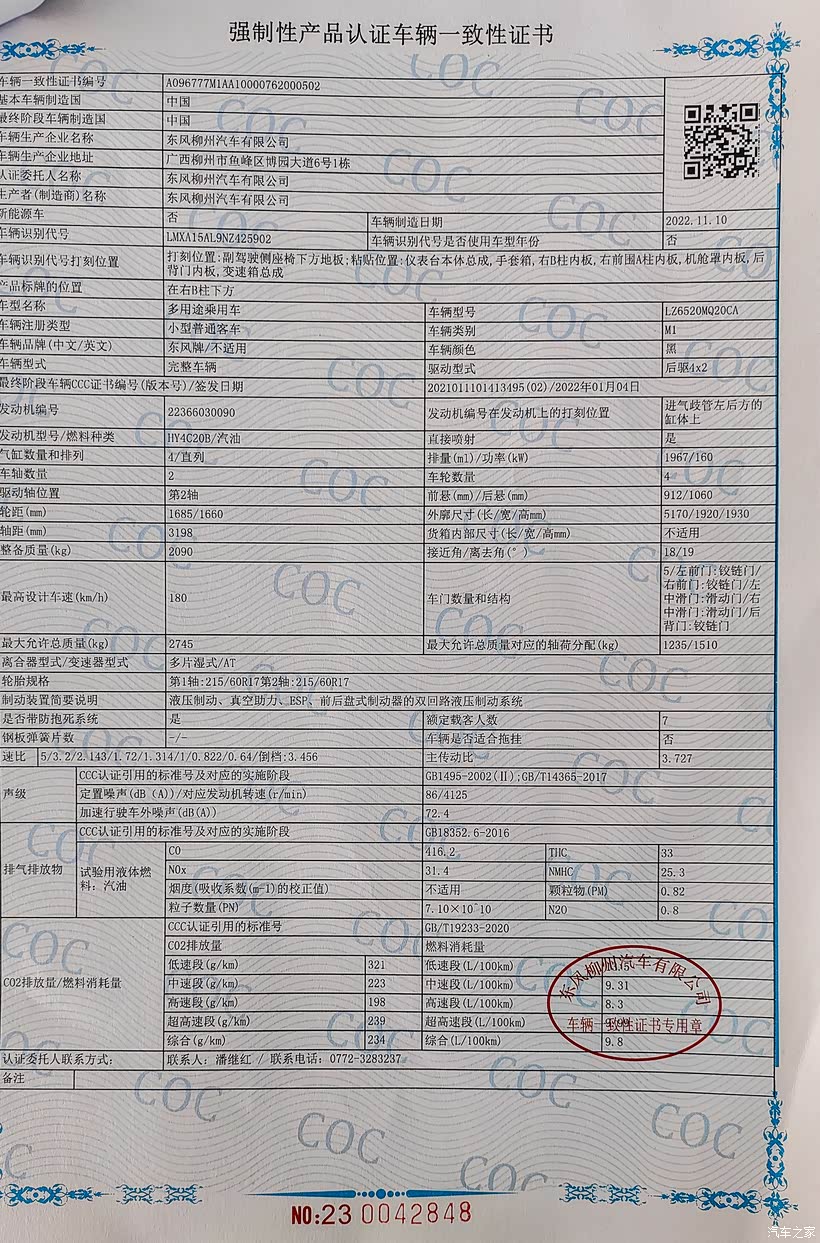 强制性产品认证车辆一致性证书
车辆一致性证书编号 A096777M1AA10000762000502
基本车辆制造国 中国
最终阶段车辆制造国 中国
车辆生产企业名称 东风柳州汽车有限公司
车辆生产企业地址 广西柳州市鱼峰区博园大道6号1栋
认证委托人名称 东风柳州汽车有限公司
生产者(制造商)名称 东风柳州汽车有限公司
新能源车 否 车辆制造日期 2022.11.10
车辆识别代号 LMXA15AL9NZ425902 车辆识别代号是否使用车型年份 否
车辆识别代号打刻位置 打刻位置:副驾驶侧座椅下方地板;粘贴位置:仪表台本体总成,手套箱,右B柱内板,右前围A柱内板,机舱罩内板,后
背门内板,变速箱总成
产品标牌的位置 在右B柱下方
车型名称 多用途乘用车 车辆型号 LZ6520MQ20CA
车辆注册类型 小型普通客车 车辆类别 M1
车辆品牌(中文/英文) 东风牌/不适用 车辆颜色 黑
车辆型式 完整车辆 驱动型式 后驱4x2
最终阶段车辆CCC证书编号(版本号)/签发日期 2021011101413495(02)/2022年01月04日
发动机编号 22366030090 发动机编号在发动机上的打刻位置 进气歧管左后方的
缸体上
发动机型号/燃料种类 HY4C20B/汽油 直接喷射 是
气缸数量和排列 4/直列 排量(ml)/功率(kW) 1967/160
车轴数量 2 车轮数量 4
驱动轴位置 第2轴 前悬(mm)/后悬(mm) 912/1060
轮距(mm) 1685/1660 外廓尺寸(长/宽/高mm) 5170/1920/1930
轴距(mm) 3198 货箱内部尺寸(长/宽/高mm) 不适用
整备质量(kg) 2090 接近角/离去角(°) 18/19
最高设计车速(km/h) 180 车门数量和结构 5/左前门:铰链门/
右前门:铰链门/左
中滑门:滑动门/右
中滑门:滑动门/后
背门:铰链门
最大允许总质量(kg) 2745 最大允许总质量对应的轴荷分配(kg) 1235/1510
离合器型式/变速器型式 多片湿式/AT
轮胎规格 第1轴:215/60R17第2轴:215/60R17
制动装置简要说明 液压制动、真空助力、ESP、前后盘式制动器的双回路液压制动系统
是否带防抱死系统 是 额定载客人数 7
钢板弹簧片数 -/- 车辆是否适合拖挂 否
速比 5/3.2/2.143/1.72/1.314/1/0.822/0.64/倒档:3.456 主传动比 3.727
声级 CCC认证引用的标准号及对应的实施阶段 GB1495-2002(Ⅱ);GB/T14365-2017
定置噪声(dB（A))/对应发动机转速(r/min) 86/4125
加速行驶车外噪声(dB(A)) 72.4
排气排放物 CCC认证引用的标准号及对应的实施阶段 GB18352.6-2016
试验用液体燃
料: 汽油
CO 416.2 THC 33
NOx 31.4 NMHC 25.3
烟度(吸收系数(m-1)的校正值) 不适用 颗粒物(PM) 0.82
粒子数量(PN) 7.10×10^10 N2O 0.8
CO2排放量/燃料消耗量 CCC认证引用的标准号 GB/T19233-2020
CO2排放量 燃料消耗量
低速段(g/km) 321 低速段(L/100km)
中速段(g/km) 223 中速段(L/100km) 9.31
高速段(g/km) 198 高速段(L/100km) 8.3
超高速段(g/km) 239 超高速段(L/100km)
综合(g/km) 234 综合(L/100km) 9.8
东风柳州汽车有限公司
车辆一致性证书专用章
认证委托人联系方式: 联系人: 潘继红 / 联系电话: 0772-3283237
备注
NO:23 0042848
汽车之家